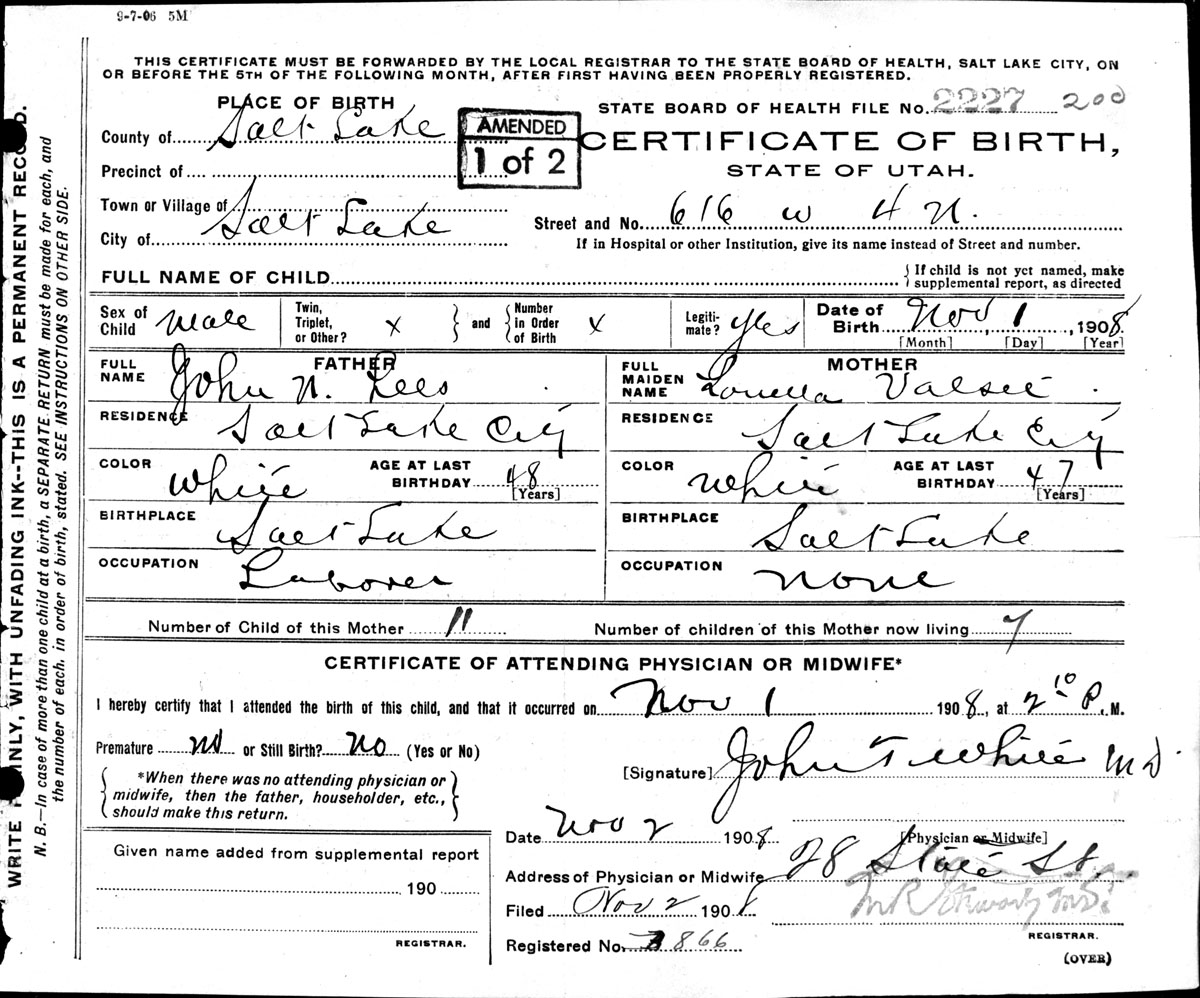 9-7-06 5M
THIS CERTIFICATE MUST BE FORWARDED BY THE LOCAL REGISTRAR TO THE STATE BOARD OF HEALTH, SALT LAKE CITY, ON
OR BEFORE THE 5TH OF THE FOLLOWING MONTH, AFTER FIRST HAVING BEEN PROPERLY REGISTERED.
PLACE OF BIRTH
STATE BOARD OF HEALTH FILE No. 2227 200
County of Salt Lake
AMENDED
1 of 2
CERTIFICATE OF BIRTH,
STATE OF UTAH.
Precinct of
Town or Village of
City of Salt Lake
Street and No. 616 W 4 N.
If in Hospital or other Institution, give its name instead of Street and number.
FULL NAME OF CHILD
{ If child is not yet named, make
supplemental report, as directed
Sex of Child Male
Twin, Triplet, or Other? x } and { Number in Order of Birth x
Legiti-mate? Yes
Date of Birth Nov, 1, 1908
[Month] [Day] [Year]
FATHER
FULL NAME John N. Lees
RESIDENCE Salt Lake City
COLOR White AGE AT LAST BIRTHDAY 48 [Years]
BIRTHPLACE Salt Lake
OCCUPATION Laborer
MOTHER
FULL MAIDEN NAME Louella
RESIDENCE Salt Lake City
COLOR White AGE AT LAST BIRTHDAY 47 [Years]
BIRTHPLACE Salt Lake
OCCUPATION none
Number of Child of this Mother 11 Number of children of this Mother now living 7
CERTIFICATE OF ATTENDING PHYSICIAN OR MIDWIFE*
I hereby certify that I attended the birth of this child, and that it occurred on Nov 1 1908, at 2 10 P. M.
Premature no or Still Birth? No (Yes or No)
{ *When there was no attending physician or
midwife, then the father, householder, etc.,
should make this return. }
[Signature] John T White MD.
[Physician or Midwife]
Date Nov 2 1908
Address of Physician or Midwife 28 State St.
Filed Nov 2 1908
Registered No. 866
REGISTRAR.
(OVER)
Given name added from supplemental report
190
REGISTRAR.
WRITE PLAINLY, WITH UNFADING INK--THIS IS A PERMANENT RECORD.
N. B.—In case of more than one child at a birth, a SEPARATE RETURN must be made for each, and
the number of each, in order of birth, stated. SEE INSTRUCTIONS ON OTHER SIDE.